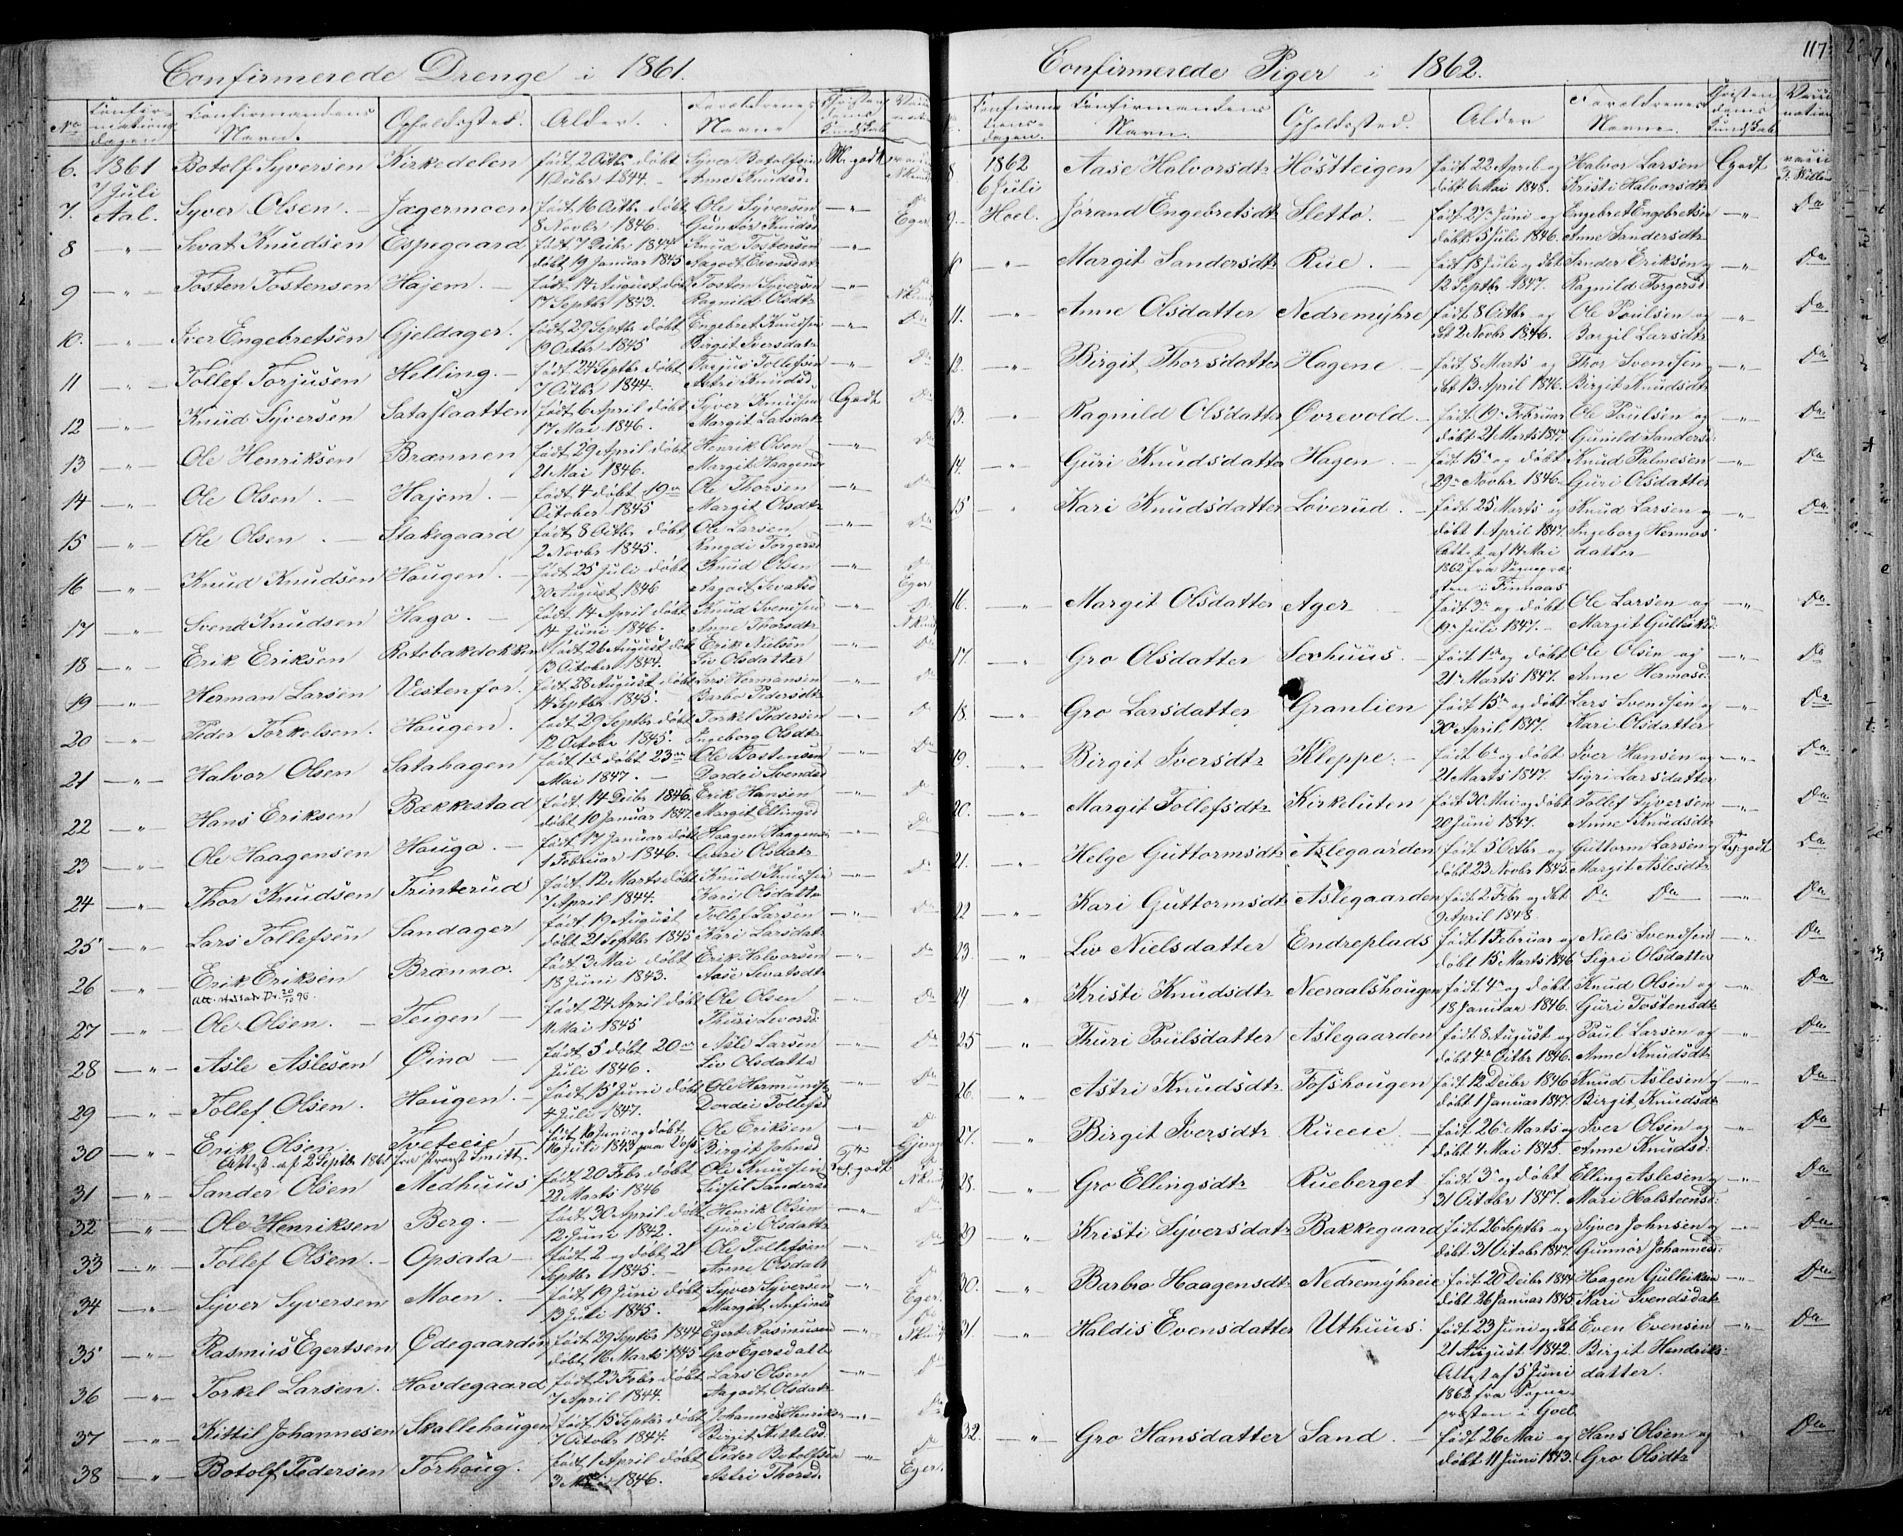 Confirmerede Drenge i 1861.
No Confirmationsdagen Confirmandens Navn. Opholdssted. Alder. Foreldrenes Navne Christendoms Kundskab
6. 1861 Botolf Syversen Kirkedelen født 2 Octbr døbt Syver Botolfsen M. godt
7 Juli 1 Decbr 1844. Anne Knudsd.
7. Aal. Syver Olsen. Jægermoen født 16 Octbr døbt Ole Syversen Do
8 Novbr 1846. Gunnor Knudsd Eger
8 Sevat Knudsen Espegaard født 7 Decbr 1844 Knud Tostensen
døbt 19 Januar 1845 Aagot Evensdatr
9 Tosten Tostensen Hajem. født 14 August døbt Tosten Syversen
17 Septbr 1843. Ragnild Olsdtr
10. Iver Engebretsen Gjeldager. født 29 Septbr døbt Engebret Knudsen Do
19 Octbr 1845 Birgit Iversdatr
11 Tollef Torjusen Helling. født 24 Septbr døbt Torjus Tollefsen Do
7 Octbr 1844. Astri Knudsd
12 Knud Syversen Sataslaatten født 6 April døbt Syver Knudsen Godt Do
17 Mai 1846. Margit Larsdatr
13 Ole Henriksen Brænnen født 29 April døbt Henrik Olsen Do
21 Mai 1846. Margit Haagensd
14 Ole Olsen. Hajem. født 4 døbt 19de Ole Thorsen Do
October 1845 Margit Olsdtr
15 Ole Olsen. Stakegaard født 8 Octbr døbt Ole Larsen Do
2 Novbr 1845. Rangdi Torgersd
16 Knud Knudsen Haugen. født 25 Juli døbt Knud Olsen Do
30 August 1846 Aagot Sevatsd Eger
17 Svend Knudsen Haga. født 14 April døbt Knud Svendsen
14 Juni 1846. Anne Thorsdtr
18 Erik Eriksen Rotebakdokken født 26 August døbt Erik Nielsen Do
13 October 1844. Liv Olsdatter
19 Herman Larsen Vestenfor. født 28 August døbt Lars Hermansen Do
14 Septbr 1845. Barbo Pedersdtr
20 Peder Torkelsen. Haugen. født 29 Septbr døbt Torkel Pedersen Do
12 Octobr 1845. Ingeborg Olsdtr
21 Halvor Olsen Satahagen født 1ste døbt 23de Ole Tostensen Do
Mai 1847. Dordei Svendsd
22 Hans Eriksen Bækkestad født 14 Decbr 1846. Erik Hansen Do
døbt 10 Januar 1847. Margit Ellingsd
23 Ole Haagensen Hauga. født 17 Januar døbt Haagen Haagens Do
1 Februar 1846. Guri Olsdatr
24 Thor Knudsen Trinterud født 12 Marts døbt Knud Knudsen Do
7 April 1844. Kari Olsdattr
25 Lars Tollefsen Sandager født 19 August Tollef Larsen Do
døbt 21 Septbr 1845 Kari Larsdatr
26 Erik Eriksen Brænno. født 3 Mai døbt Erik Halvorsen Do
18 Juni 1843. Aase Sevatsdtr
27 Ole Olsen. Teigen født 24 April døbt Ole Olsen Do
11 Mai 1845 Thuri Levorsd
28 Asle Aslesen Øino født 5 døbt 20de Asle Larsen Do
Juli 1846. Liv Olsdattr
29 Tollef Olsen. Haugen. født 15 Juni døbt Ole Hermundsen Do
4 Juli 1847. Dordei Tollefsd
30 Erik Olsen Tveteeie født 16 Juni og døbt Ole Eriksen Do
Attest af 2 Septbr 1861 fra Provst Smitt. 16 Juli 1843 Birgit Johnsd
31 Sander Olsen Medhuus født 20 Febr døbt Ole Knudsen Tsp. godt
22 Marts 1846 Sissil Sandersd
32 Ole Henriksen Berg. født 30 April døbt Henrik Olsen Do
12 Juni 1842. Guri Olsdatter
33 Tollef Olsen. Opsata født 2 og døbt 21 Ole Tollefsen Do
Septbr 1845. Anne Olsdatr
34 Syver Syversen Moen. født 19 Juni døbt Syver Syversen Do
13 Juli 1845. Margit Anfinsd Eger.
35 Rasmus Egertsen Ødegaarden født 29 Septbr 1844 Egert Rasmusen Do
døbt 16 Marts 1845 Gro Egersdattr
36 Torkel Larsen. Hovdegaard født 23 Febr døbt Lars Olsen Do
7 April 1844. Aagot Olsdatr
37 Kittil Johannesen Skallehaugen født 15 Septbr døbt Johannes Henriks Do
7 Octobr 1844. Birgit Kittelsd
38 Botolf Pedersen Torhoug. født 1 April døbt Peder Botolfsen Do
3 Mai 1846. Astri Thorsd. Eger.
117
Confirmerede Piger i 1862.
Confirmationsdagen Confirmandens Navn. Opholdssted. Alder Foreldrenes Navne. Christendoms Kundskab Vaccination
8 1862 Aase Halvorsdtr Høstteigen født 22 April og Halvor Larsen Godt
6 Juli døbt 6 Mai 1848. Kristi Halvorsdtr
9. Hoel. Jørand Engebretsdtr Sletto. født 27de Juni og Engebret Engebretsen Do
døbt 5 Juli 1846. Anne Sandersdtr
Margit Sandersdtr Rue. født 18 Juli og døbt Sander Eriksen Do
12 Septbr 1847. Ragnild Torgersd
11. Anne Olsdatter Nedremyhre født 8 Octbr og Ole Poulsen og Do
døbt 2 Novbr 1846. Borgil Larsdtr
12. Birgit Thorsdatter Hagene. født 8 Marts og Thor Svendsen Do
døbt 13 April 1846. Birgit Knudsdtr
13. Ragnild Olsdatter Øvrevold født 19de Februar Ole Poulsen og Do
døbt 21 Marts 1847. Gunild Sandersd:
14. Guri Knudsdatter Hagen. født 15de og døbt Knud Palmesen Do
29de Novbr 1846. Guri Olsdatter
15 Kari Knudsdatter Løverud. født 25 Marts og Knud Larsen og Do
døbt 1 April 1847. Ingeborg Hermos
Attest af 14 Mai datter
1862 fra Sognepræsten i Finnaas
16. Margit Olsdatter Ager født 3de og døbt Ole Larsen og Do
19de Juli 1847. Margit Gulliksd:
17. Gro Olsdatter Serhuus. født 1ste og døbt Ole Olsen og Do
21de Marts 1847. Anne Hermosd:
18. Gro Larsdatter Granlien født 15de og døbt Lars Svendsen og Do
30 April 1847. Kari Olsdatter
19. Birgit Iversdtr Kleppe. født 6te og døbt Iver Hansen og Do
21 Marts 1847. Sigri Larsdatter
20. Margit Tollefsdtr Kirkeluten født 30 Mai og døbt Tollef Syversen Do
20 Juni 1847. Anne Knudsdtr
21. Helge Guttormsdtr Aslegaarden født 5 Octbr og Guttorm Larsen og Tsp. godt Do
døbt 23 Novbr 1845. Margit Aslesdtr
22 Kari Guttormsdtr Aslegaarden født 2 Febr og døbt Do Do Do
9 April 1848
23. Liv Nielsdatter Endreplads født 1 Februar og Niels Svendsen Do
døbt 15 Marts 1846 Sigri Olsdatter
24 Kristi Knudsdtr Neeraalshougen født 4de og døbt Knud Olsen og Do
18 Januar 1846. Guri Tostensdtr
25 Thuri Poulsdatter Aslegaarden født 8 August og Poul Larsen og Do
døbt 4de Octbr 1846. Anne Knudsdtr
26. Astri Knudsdtr. Fosshougen født 12 Decbr 1846 Knud Aslesen og Do
døbt 1 Januar 1847. Birgit Knudsdtr
27. Birgit Iversdtr. Rueeie født 26 Marts og Iver Olsen og Do
døbt 4 Mai 1845. Anne Knudsd:
28. Gro Ellingsdtr Rueberget født 3de og døbt Elling Aslesen og Do
31 Octobr 1847. Mari Halsteensd:
29 Kristi Syversdatr Bakkegaard født 26 Septbr og Syver Johnsen og Do
døbt 31 Octobr 1847. Gunnor Johannesd:
30. Barbro Haagensdtr Nedremyhreie født 20 Decbr 1844 Haagen Gulleiksen Do
døbt 26 Januar 1845 Kari Svendsdatr
31 Haldis Evensdatter Uthuus: født 23 Juni og døbt Even Evensen Do
21 August 1842. Birgit Hendriks
Attest af 5 Juni datter.
1862 fra Sognepræsten i Goel
32. Gro Hansdatter Sand. født 26 Mai og Hans Olsen og Do
døbt 11 Juni 1843. Gro Olsdtr